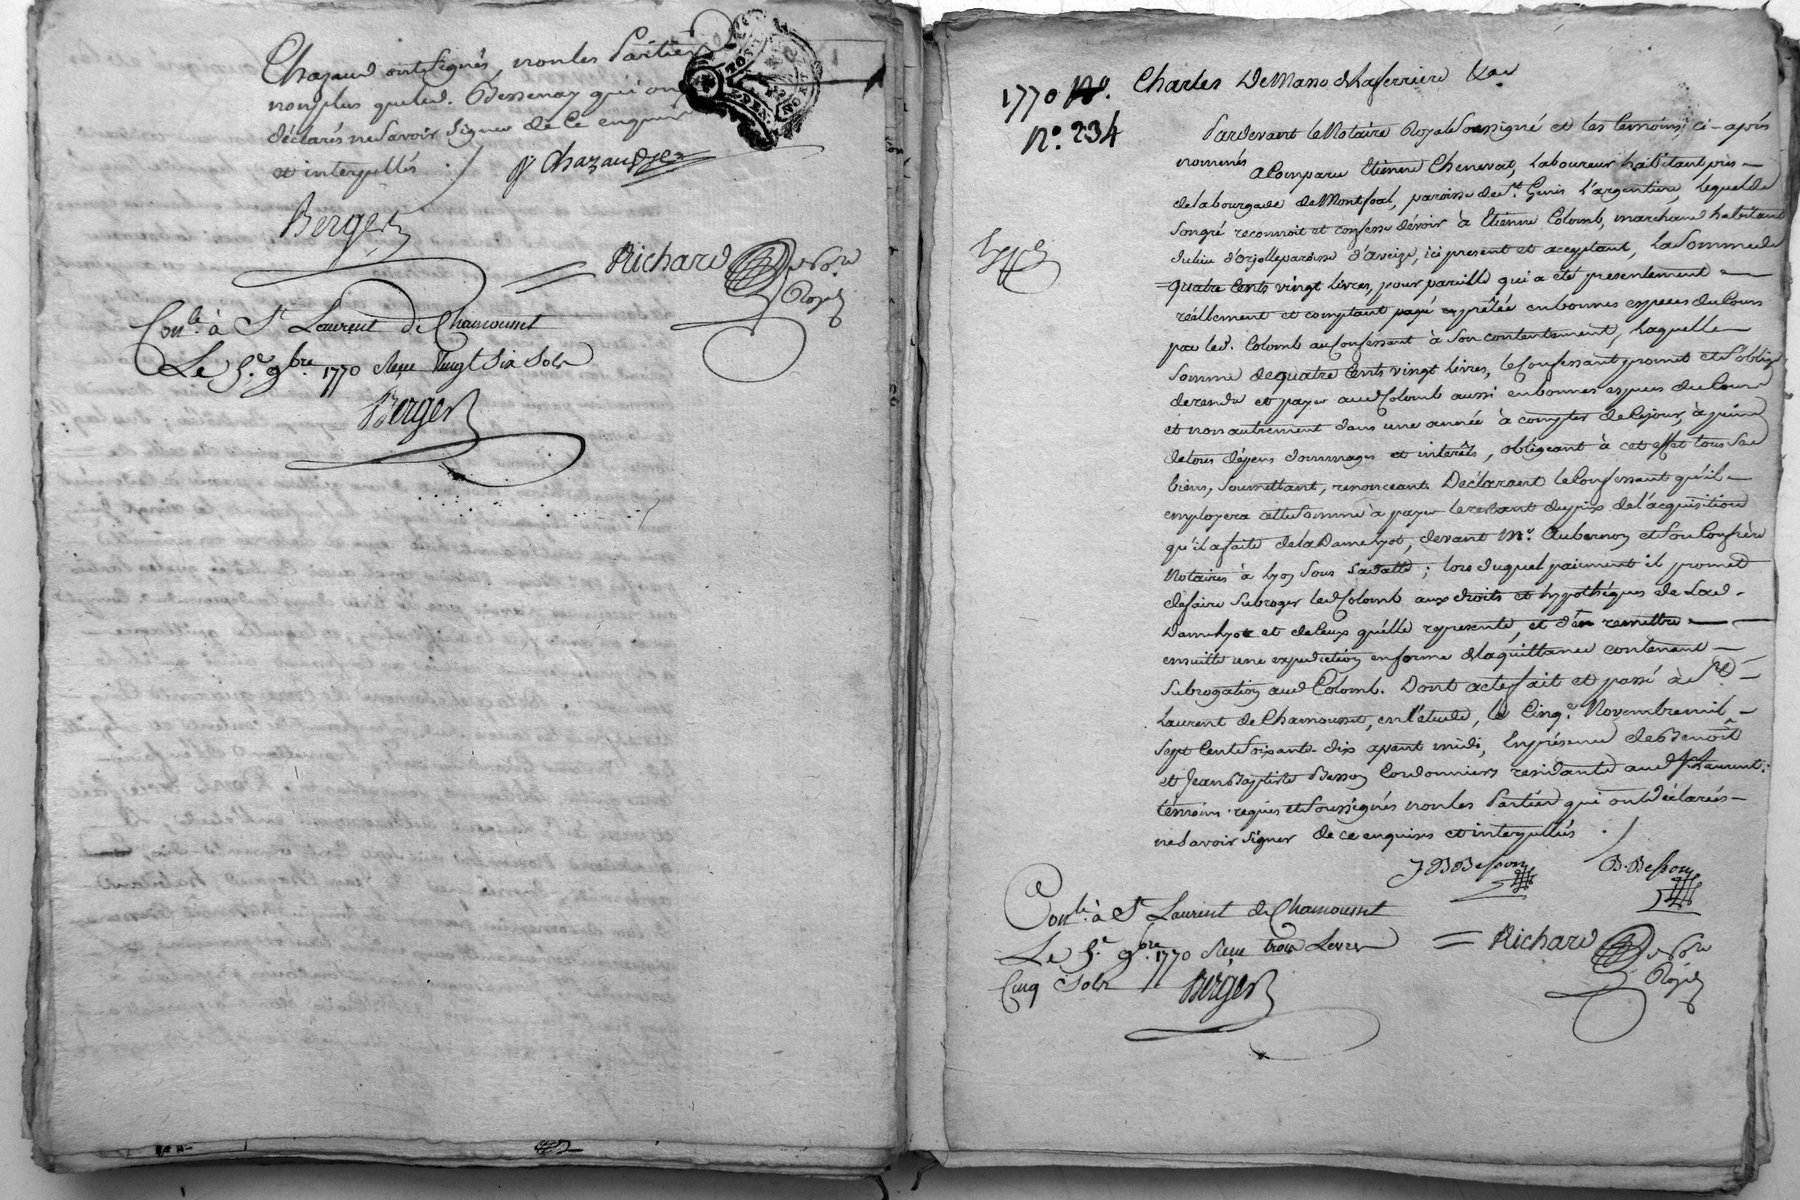 Chazaud ont signés, non les Parties
non plus que led. Bessenay qui ont
déclarés ne savoir signer de ce enquis
et interpellés ./.
Chazaud
Berger
Richard
Not.re Royal
Con.lé à S.t Laurent de Chamousset
Le 5.e 9.bre 1770 Reçu Vingt Six Sols
Berger
1770 N.o Charles De Masso Delaferriere &a
N.o 234
Pardevant le Notaire Royal Soussigné et les temoins ci-après
nommés
a Comparu Etienne Chenevat, Laboureur habitant près
de la bourgade de Montfoal, paroisse de S.t Genis L'argentiere, lequel de
son gré reconnoit et confesse dévoir à Etienne Colomb, marchand habitant
du lieu d'orjolle paroisse d'aveize, ici present et acceptant, La Somme de
quatre Cents vingt Livres, pour pareille qui a été presentement
réellement et comptant payé et prêtée en bonnes especes du Cours
par led. Colomb au Confessant à Son contentement, Laquelle
Somme de quatre Cents vingt Livres, le Confessant promet et s'oblige
de rendre et payer aud Colomb aussi en bonnes especes du Cours
et non autrement dans une année à compter de ce jour, à peine
de tous dépens dommages et interêts, obligeant à cet effet tous Ses
biens, Soumettant, renonceant. Déclarant le Confessant qu'il
employera cette Somme à payer le restant du prix de l'acquisition
qu'il a faite de la Dame hyot, devant M.e Aubernon et Son Confrère
Notaires à Lyon Sous Sa datte; lors duquel paiment il promet
de faire Subroger led Colomb aux droits et hypothèques de Lad.
Dame hyot et de Ceux qu'elle represente, et d'en remettre
ensuitte une expedition en forme de la quittance contenant
Subrogation aud Colomb. Dont acte fait et passé à S.t
Laurent de Chamousset, en l'étude, le Cinq.e Novembre mil
Sept Cent Soixante dix avant midi, En présence de Benoît
et Jean Baptiste Besson Cordonniers residants aud S.t Laurent;
témoins requis et Soussignés non les Parties qui ont déclarés
ne Savoir Signer de ce enquises et interpellées ./.
J B Besson
B. Besson
Con.lé à S.t Laurent de Chamousset
Le 5.e 9.bre 1770 Reçu trois Livres
Cinq Sols
Berger
Richard
Not.re Royal